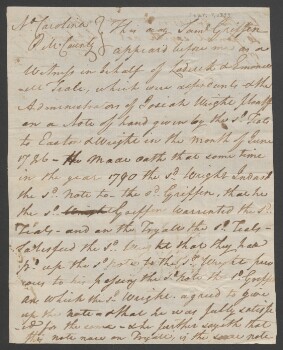 No Carolina } This day Saml Griffin
Pitt County } appeard before me as a
Witness in behalf of Lodrick & Emman
-uel Teale, which were defendants & the
Administrators of Josiah Wright Plantiff
on a Note of hand given by the sd. Teals
to Easton & Wright in the month of June
1786 – He Made oath that some time
in the year 1790 the sd. Wright Indorsd
the sd. Note to the sd. Griffin, that he
the sd. Griffin Warrented the sd.
Teals – and on the Tryall the sd. Teals
the sd. Wright that they had
pd. up the sd. note to the sd. Wright previ
ous to his passing the sd. Note to sd. Griffin
on which the sd. Wright agreed to give
up the note & that he was fully satisfi
ed for the same – & he further sayeth that
this note now on Tryale, is the same note